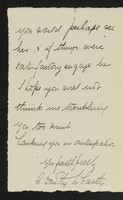 you would perhaps see
her, & if things were
satisfactory engage her
I hope you will not
think me troubling
you too much.
Thanking you in anticipation
Yrs faithfully